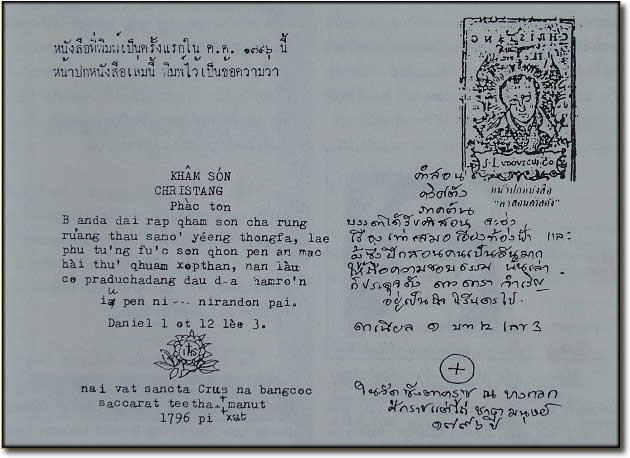 หนังสือที่พิมพ์เป็นครั้งแรกใน ค.ศ. ๑๗๙๖ นี้
หน้าปกหนังสือเล่มนี้ พิมพ์ไว้เป็นข้อความว่า
KHÂM SÓN
CHRISTANG
Phàc ton
B anda dai rap qham son cha rung
ruang thau samo' yéeng thongfa, lae
phu tu'ng fu'c son qhon pen an mac
hài thu' qhuam xopthan, nan làu
co praduchadang dau d-a hamro'n
pen ni --- nirandon pai.
Daniel 1 ot 12 lèe 3.
IHS
nai vat sancta Crus na bangcoc
saccarat teetha manut
1796 pi xat
S. LUDOVICUS
หน้าปกหนังสือ
"คำสอนคริสตัง"
คำสอน
คริสตัง
ภาคต้น
บรรดาได้รับคำสอน จะรุ่ง
เรืองเท่าเสมอเยี่ยงท้องฟ้า และ
ผู้ซึ่งฝึกสอนคนเป็นอันมาก
ให้ถือความชอบธรรม นั้นเล่า
ก็ประดุจดัง ดาวดารา
อยู่เป็นนิจนิรันดรไป.
ดาเนียล ๑ บท ๒ เลข 3
ในวัดซางตาครูซ ณ บางกอก
๑๗๙๖ ปี